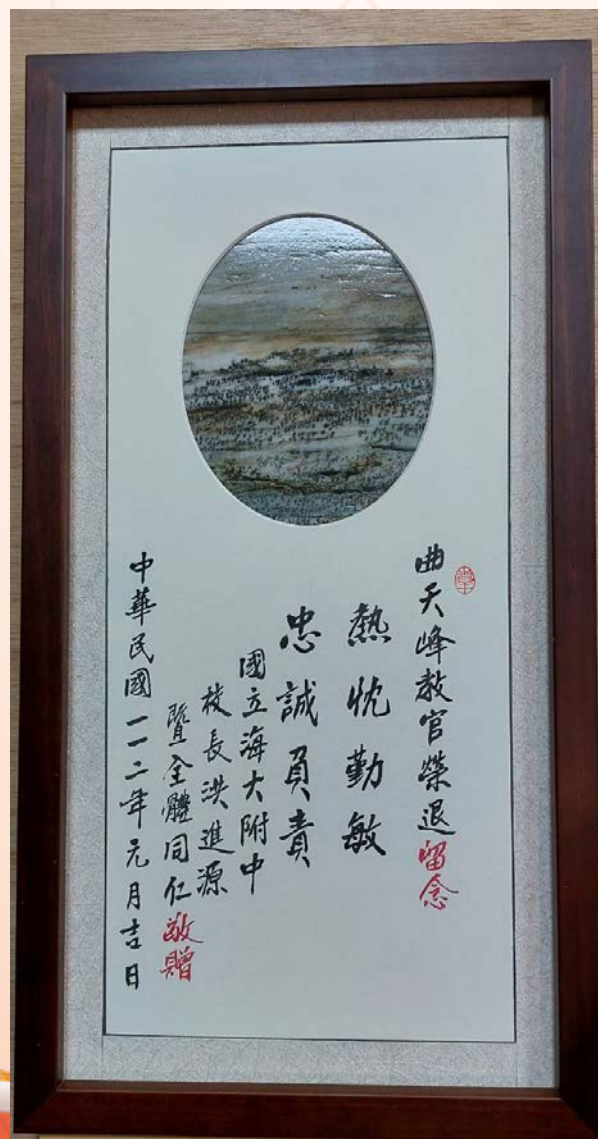 曲天峰教官榮退留念
熱忱勤敏
忠誠負責
國立海大附中
校長洪進源
暨全體同仁敬贈
中華民國一一二年元月吉日